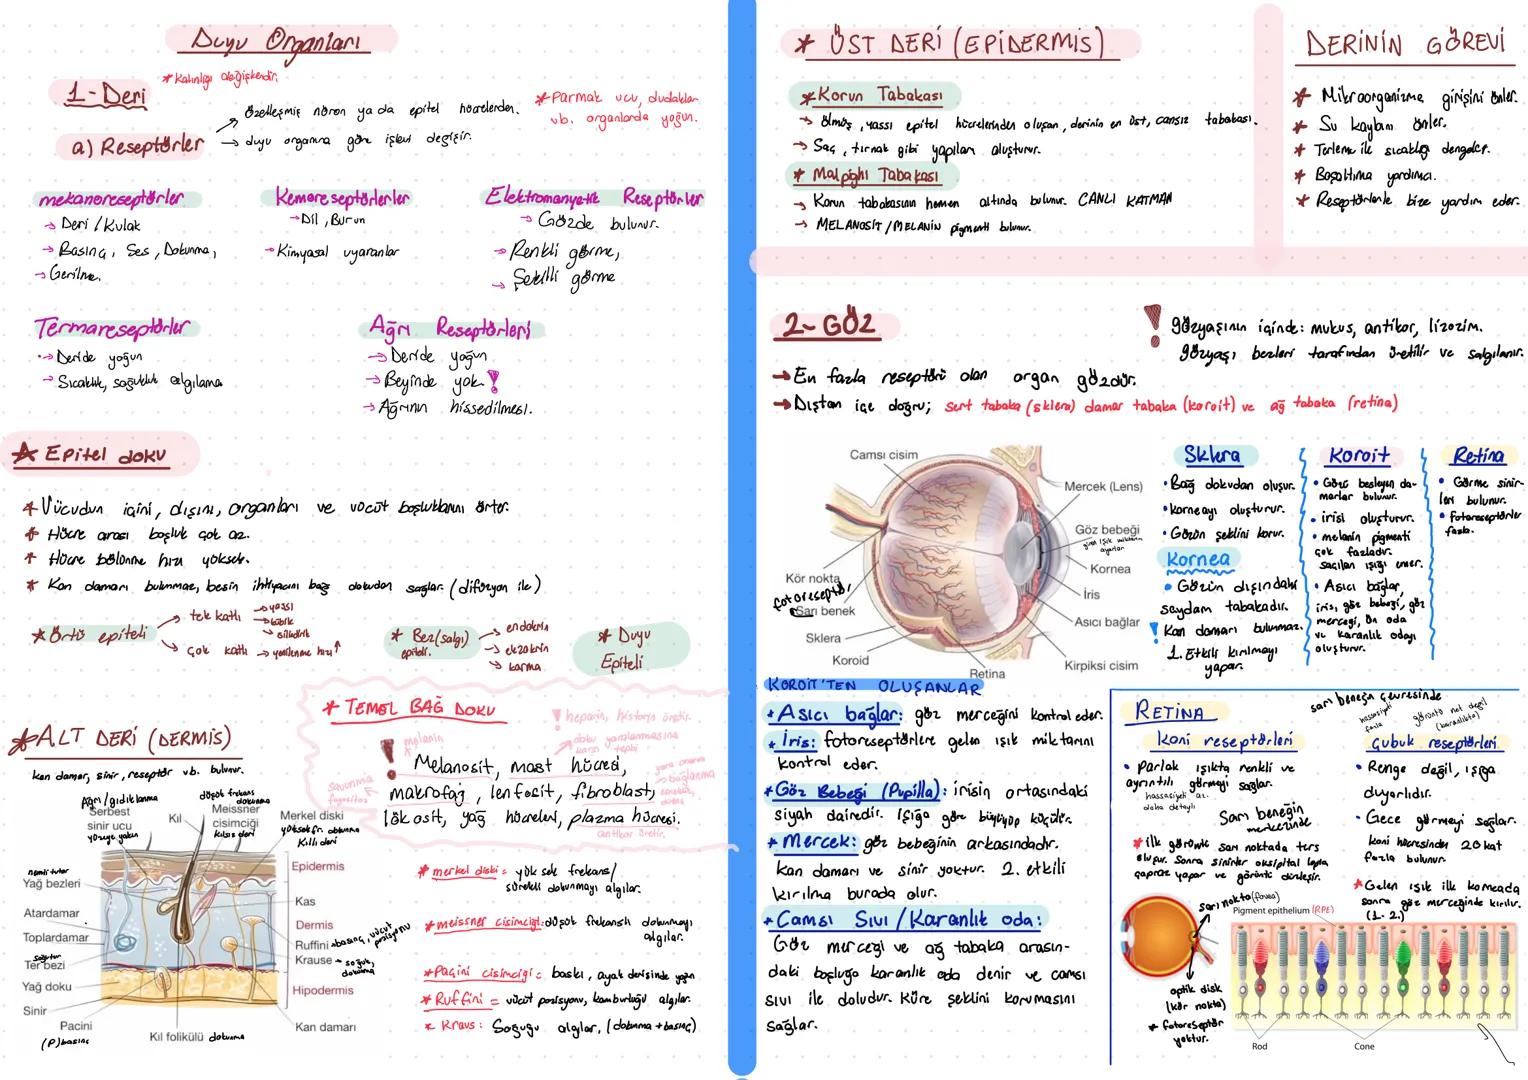 Duyu Organları
1-Deri
* Kalınlığı değişkendir.
a) Reseptörler
→ Özelleşmiş nöron ya da epitel hücrelerden.
→ duyu organına göre işlevi değişir.
* Parmak ucu, dudaklar
vb. organlarda yoğun.
mekanoreseptörler
→ Deri / Kulak
→ Basınç, Ses, Dokunma,
→ Gerilme.
Kemoreseptörlerler
→ Dil, Burun
→ Kimyasal uyaranlar
Elektromanyetik Reseptörler
→ Gözde bulunur.
→ Renkli görme,
→ Şekilli görme
Termoreseptörler
→ Deride yoğun
→ Sıcaklık, soğukluk algılama
Ağrı Reseptörleri
→ Deride yoğun
→ Beyinde yok!
→ Ağrının hissedilmesi.
* Epitel doku
* Vücudun içini, dışını, organları ve vücut boşluklarını örter.
* Hücre arası boşluk çok az.
* Hücre bölünme hızı yüksek.
* Kan damarı bulunmaz, besin ihtiyacını bağ dokudan sağlar. (difüzyon ile)
* Örtü epiteli
→ tek katlı
→ yassı
→ kübik
→ silindirik
→ çok katlı → yenilenme hızı ↑
* Bez (salgı)
epiteli.
→ endokrin
→ ekzokrin
→ karma
* Duyu
Epiteli
* ALT DERİ (DERMİS)
kan damar, sinir, reseptör vb. bulunur.
* TEMEL BAĞ DOKU
! heparin, histamin üretir.
melanin
→ doku yaralanmasına
karşı tepki
Melanosit, mast hücresi,
makrofaj, lenfosit, fibroblast,
lökosit, yağ hücreleri, plazma hücresi.
savunma
fagositoz
yara onarma
→ bağlanma
antikor üretir.
Ağrı / gıdıklanma
Serbest
sinir ucu
yüzeye yakın
Kıl
düşük frekans
dokunma
Meissner
cisimciği
kılsız deri
Merkel diski
yüksek fr. dokunma
Kıllı deri
Epidermis
nemli tutar
Yağ bezleri
Kas
Atardamar
Dermis
Toplardamar
Ruffini → basınç, vücut
pozisyonu
Ter bezi
Krause → soğuk,
dokunma
Yağ doku
Hipodermis
Sinir
Pacini
(P) basınç
Kıl folikülü dokunma
Kan damarı
* merkel diski = yüksek frekans/
sürekli dokunmayı algılar.
* meissner cisimciği: düşük frekanslı dokunmayı
algılar.
* Pacini cisimciği = baskı, ayak derisinde yoğun
* Ruffini = vücut pozisyonu, kamburluğu algılar.
* Kraus: Soğuğu algılar, (dokunma + basınç)
* ÜST DERİ (EPİDERMİS)
* Korun Tabakası
→ Ölmüş, yassı epitel hücrelerinden oluşan, derinin en üst, cansız tabakası.
→ Saç, tırnak gibi yapıları oluşturur.
* Malpighi Tabakası
→ Korun tabakasının hemen altında bulunur. CANLI KATMAN
→ MELANOSİT / MELANİN pigmenti bulunur.
DERİNİN GÖREVİ
* Mikroorganizma girişini önler.
* Su kaybını önler.
* Terleme ile sıcaklığı dengeler.
* Boşaltıma yardımcı.
* Reseptörlerle bize yardım eder.
2-GÖZ
! gözyaşının içinde: mukus, antikor, lizozim.
gözyaşı bezleri tarafından üretilir ve salgılanır.
→ En fazla reseptörü olan organ gözdür.
→ Dıştan içe doğru; sert tabaka (sklera) damar tabaka (koroit) ve ağ tabaka (retina)
Camsı cisim
Mercek (Lens)
Göz bebeği
giren ışık miktarını
ayarlar
Kornea
Kör nokta
fotoreseptör
Sarı benek
İris
Asıcı bağlar
Sklera
Koroid
Retina
Kirpiksi cisim
Sklera
• Bağ dokudan oluşur.
• korneayı oluşturur.
• Gözün şeklini korur.
Kornea
• Gözün dışındaki
saydam tabakadır.
! Kan damarı bulunmaz.
1. Etkili kırılmayı
yapar.
Koroit
• Gözü besleyen da-
marlar bulunur.
• irisi oluşturur.
• melanin pigmenti
çok fazladır.
saçılan ışığı emer.
• Asıcı bağlar,
iris, göz bebeği, göz
merceği, ön oda
ve karanlık odayı
oluşturur.
Retina
• Görme sinir-
leri bulunur.
• fotoreseptörler
fazla.
KOROİT'TEN OLUŞANLAR
* Asıcı bağlar: göz merceğini kontrol eder.
* İris: fotoreseptörlere gelen ışık miktarını
kontrol eder.
* Göz Bebeği (Pupilla): irisin ortasındaki
siyah dairedir. Işığa göre büyüyüp küçülür.
* Mercek: göz bebeğinin arkasındadır.
kan damarı ve sinir yoktur. 2. etkili
kırılma burada olur.
* Camsı Sıvı / Karanlık oda:
Göz merceği ve ağ tabaka arasın-
daki boşluğa karanlık oda denir ve camsı
sıvı ile doludur. Küre şeklini korumasını
sağlar.
RETİNA
koni reseptörleri
• parlak ışıkta renkli ve
ayrıntılı görmeyi sağlar.
hassasiyeti az.
daha detaylı
Sarı beneğin
merkezinde
* ilk görüntü sarı noktada ters
oluşur. Sonra sinirler oksipital lopta
çapraz yapar ve görüntü düzleşir.
sarı beneğin çevresinde
hassasiyeti
fazla
görüntü net değil
(karanlıkta)
çubuk reseptörleri
• Renge değil, ışığa
duyarlıdır.
• Gece görmeyi sağlar.
koni hücresinden 20 kat
fazla bulunur.
* Gelen ışık ilk korneada
sonra göz merceğinde kırılır.
(1. 2.)
sarı nokta (fovea)
Pigment epithelium (RPE)
optik disk
(kör nokta)
* fotoreseptör
yoktur.
Rod
Cone